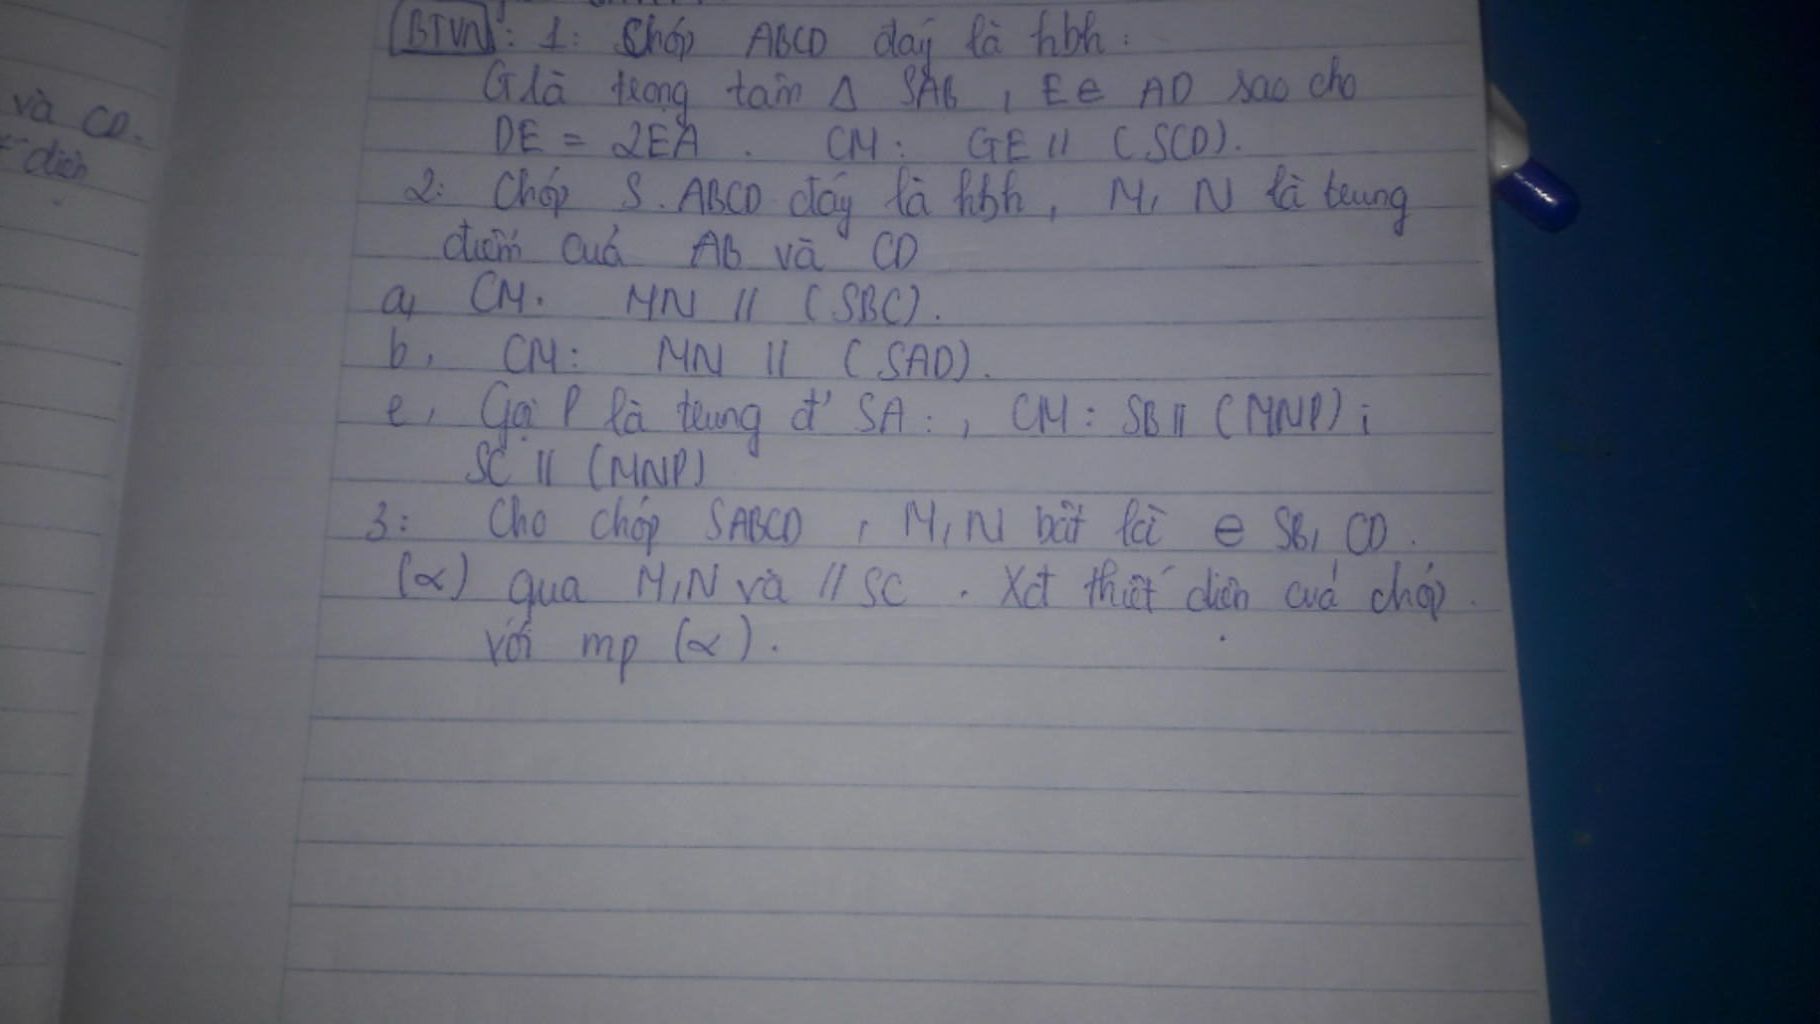 và CD.
diện
BTVN: 1: Chóp ABCD đáy là hbh.
G là trọng tâm Δ SAB, E ∈ AD sao cho
DE = 2EA. CM: GE // (SCD).
2: Chóp S.ABCD đáy là hbh, M, N là trung
điểm của AB và CD
a, CM. MN // (SBC).
b, CM: MN // (SAD).
c, Gọi P là trung đ' SA:, CM: SB // (MNP);
SC // (MNP)
3: Cho chóp SABCD, M, N bất kì ∈ SB, CD.
(α) qua M, N và // SC. Xđ thiết diện của chóp
với mp (α).